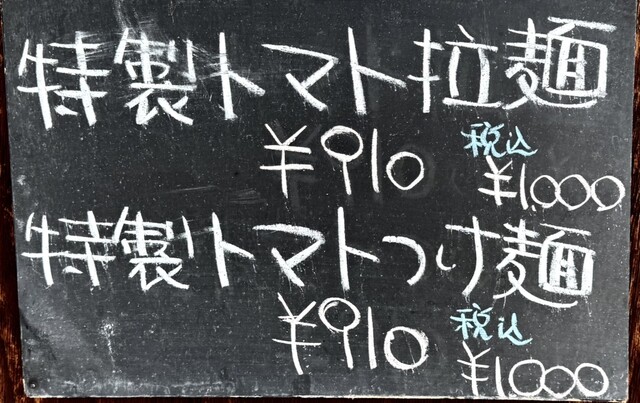 特製トマト拉麺
¥910 税込 ¥1,000
特製トマトつけ麺
¥910 税込 ¥1,000